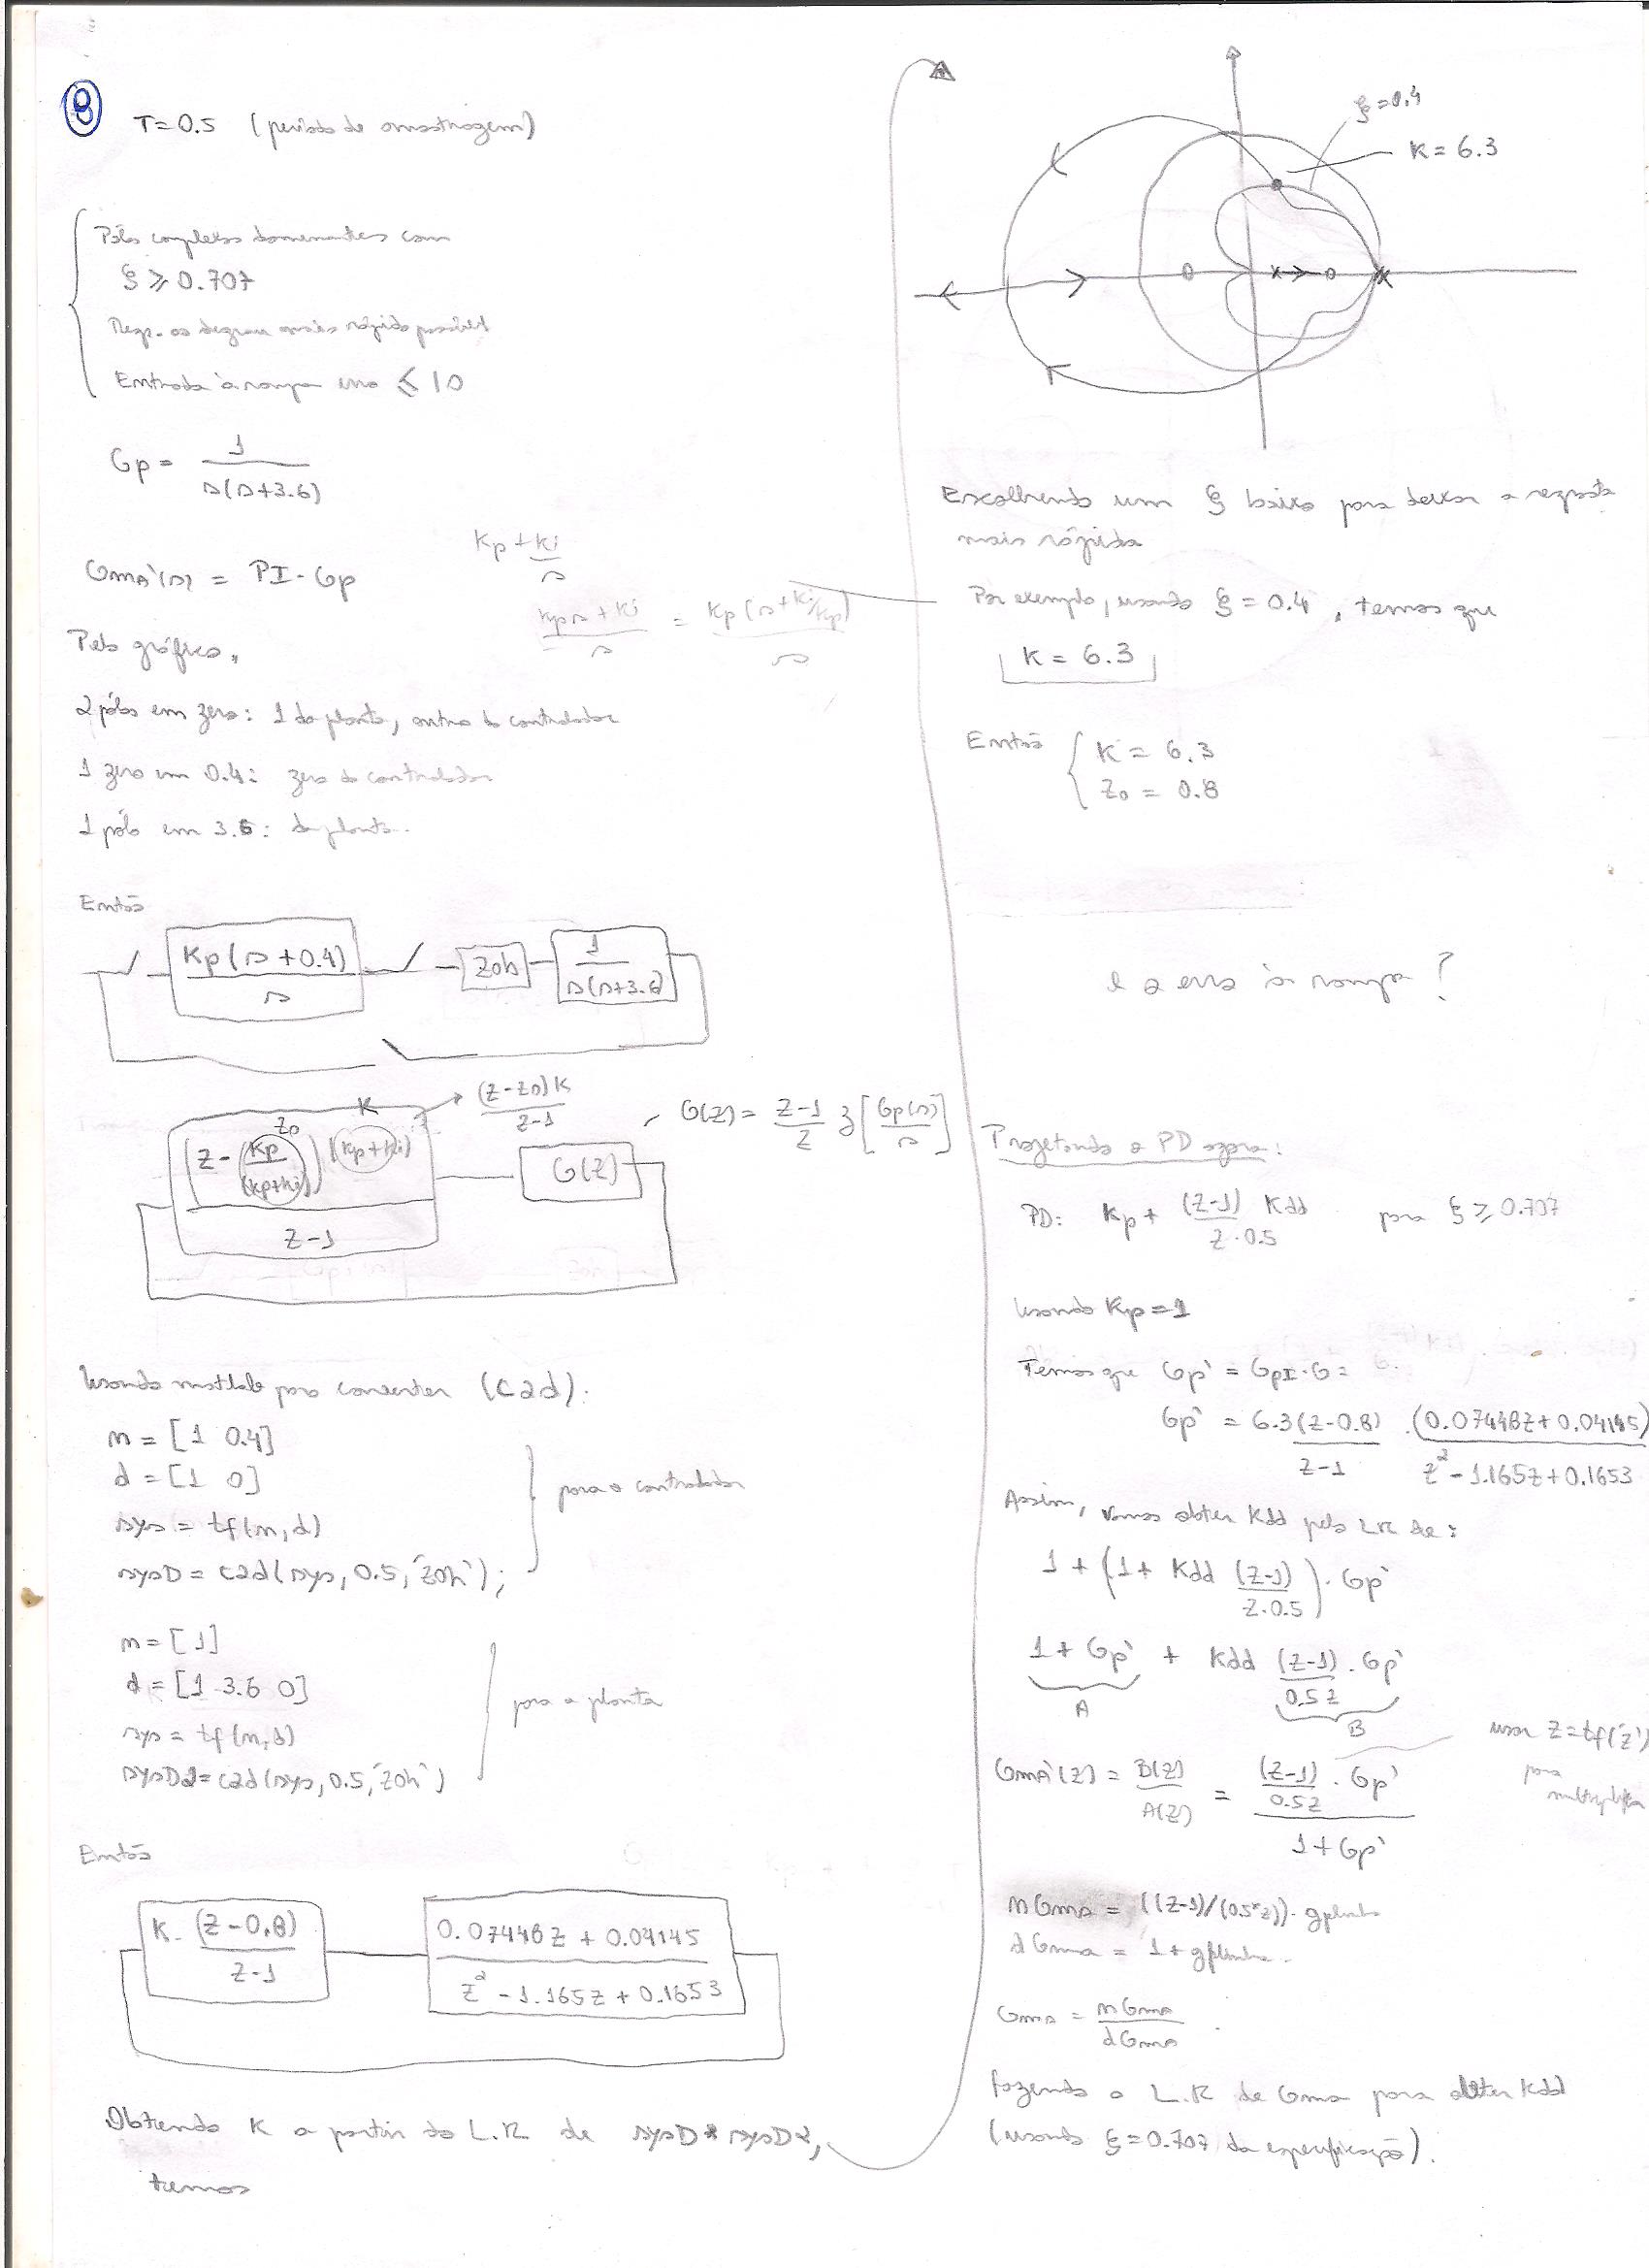 8
T=0.5 (período de amostragem)
Pólos complexos dominantes com
ξ ≥ 0.707
Resp. ao degrau mais rápido possível
Entrada à rampa erro ≤ 10
Gp = 1 / s(s+3.6)
GMA'(s) = PI · Gp
Kp + Ki/s
(Kps + Ki)/s = Kp(s + Ki/Kp)/s
Pelo gráfico,
2 pólos em zero: 1 da planta, outro do controlador
1 zero em 0.4: zero do controlador
1 pólo em 3.6: da planta.
Então
Kp(s+0.4)/s
Zoh
1/s(s+3.6)
Z0
K
(z - Kp/(Kp+Ki)) (Kp+Ki)
z-1
(z-z0)K/z-1
G(z)
, G(z) = z-1/z Z[Gp(s)/s]
Usando matlab para converter (c2d):
n = [1 0.4]
d = [1 0]
sys = tf(n,d)
sysD = c2d(sys, 0.5, 'zoh');
para o controlador
n = [1]
d = [1 3.6 0]
sys = tf(n,d)
sysD2 = c2d(sys, 0.5, 'zoh')
para a planta
Então
K. (z-0,8)/z-1
0.07448z + 0.04145
z² - 1.165z + 0.1653
Obtendo K a partir do L.R. de sysD * sysD2,
temos
ξ=0.4
K = 6.3
Escolhendo um ξ baixo para deixar a resposta
mais rápida
Por exemplo, usando ξ = 0.4, temos que
K = 6.3
Então { K = 6.3
Z0 = 0.8
e o erro à rampa?
Projetando o PD agora:
PD: Kp + (z-1)/z·0.5 Kdd para ξ ≥ 0.707
Usando Kp = 1
Temos que Gp' = GPI·G =
Gp' = 6.3(z-0.8)/z-1 · (0.07448z + 0.04145)/z² - 1.165z + 0.1653
Assim, vamos obter Kdd pelo LR de:
1 + (1 + Kdd (z-1)/z.0.5) · Gp'
1 + Gp' + Kdd (z-1)/0.5z · Gp'
A
B
GMA'(z) = B(z)/A(z) = (z-1)/0.5z · Gp' / 1 + Gp'
usar z=tf('z')
para
multiplicar
nGma = ((z-1)/(0.5*z)) · gplinha
dGma = 1 + gplinha.
Gma = nGma/dGma
fazendo o L.R de Gma para obter Kdd
(usando ξ=0.707 da especificação).